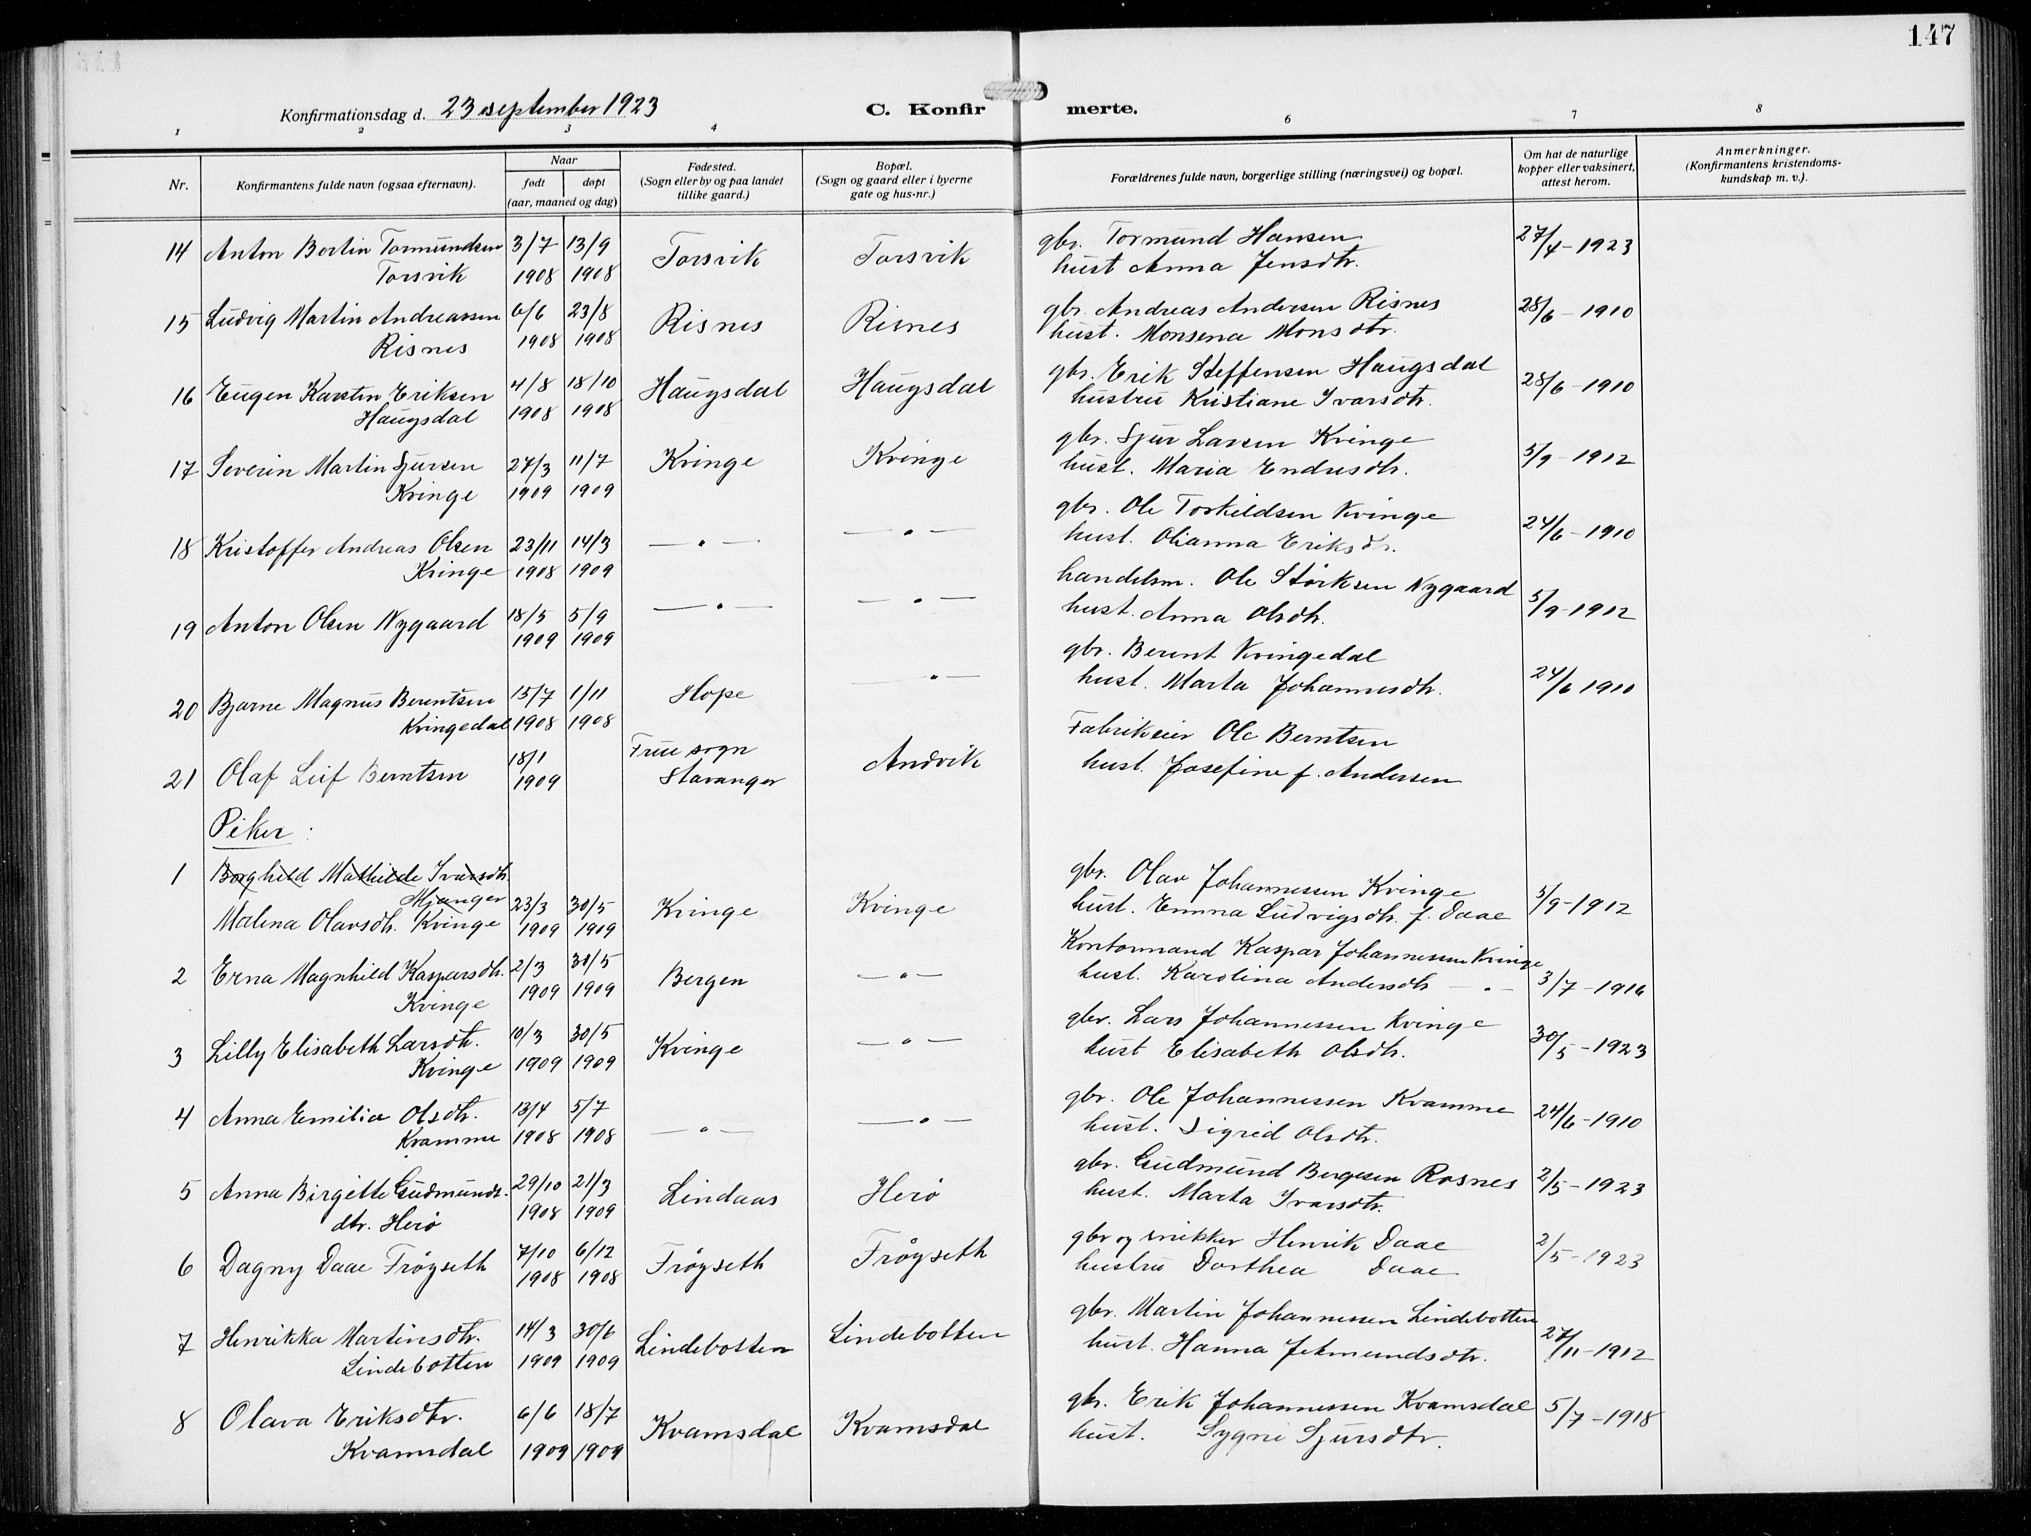 147
Konfirmationsdag d. 23 september 1923
C. Konfirmerte.
1 2 3 4 6 7 8
Nr.
Konfirmantens fulde navn (ogsaa efternavn).
Naar
født
døpt
(aar, maaned og dag)
Fødested.
(Sogn eller by og paa landet
tillike gaard.)
Bopæl.
(Sogn og gaard eller i byerne
gate og hus-nr.)
Forældrenes fulde navn, borgerlige stilling (næringsvei) og bopæl.
Om hat de naturlige
kopper eller vaksinert,
attest herom.
Anmerkninger.
(Konfirmantens kristendoms-
kundskap m. v.).
14 Anton Bertin Tormundsen 3/7 13/9 Torsvik Torsvik gbr. Tormund Hansen 27/4-1923
Torsvik 1908 1908 hust Anna Jensdtr.
15 Ludvig Martin Andreassen 6/6 23/8 Risnes Risnes gbr. Andreas Andersen Risnes 28/6-1910
Risnes 1908 1908 hust. Monsena Monsdtr.
16 Eugen Karsten Eriksen 4/8 18/10 Haugsdal Haugsdal gbr. Erik Steffensen Haugsdal 28/6-1910
Haugsdal 1908 1908 hustru Kristiane Ivarsdtr.
17 Severin Martin Sjursen 27/3 11/7 Kvinge Kvinge gbr. Sjur Larsen Kvinge 5/9-1912
Kvinge 1909 1909 hust. Maria Endresdtr.
18 Kristoffer Andreas Olsen 23/11 14/3 —"— —"— gbr. Ole Torkildsen Kvinge 24/6-1910
Kvinge 1908 1909 hust. Olianna Eriksdtr.
19 Anton Olsen Nygaard 18/5 5/9 —"— —"— handelsm. Ole Størksen Nygaard 5/9-1912
1909 1909 hust. Anna Olsdtr.
20 Bjarne Magnus Berentsen 15/7 1/11 Hope —"— gbr. Berent Kvingedal 24/6 1910
Kvingedal 1908 1908 hust. Marta Johannesdtr.
21 Olaf Leif Berntsen 18/1 Frue sogn Andvik Fabrikeier Ole Berntsen
1909 Stavanger hust. Josefine f. Andersen
Piker:
1 Borghild Mathilde Ivarsdtr.
Mjanger
Malena Olavsdtr. Kvinge 23/3 30/5 Kvinge Kvinge gbr. Olav Johannessen Kvinge 5/9-1912
1909 1909 hust. Emma Ludvigsdtr. f. Daae
2 Erna Magnhild Kasparsdtr. 2/3 30/5 Bergen —"— Kontormand Kaspar Johannessen Kvinge 3/7-1916
Kvinge 1909 1909 hust. Karolina Andersdtr —"—
3 Lilly Elisabeth Larsdtr. 10/3 30/5 Kvinge —"— gbr. Lars Johannessen Kvinge 30/5-1923
Kvinge 1909 1909 hust Elisabeth Olsdtr.
4 Anna Emilie Olsdtr. 13/4 5/7 —"— —"— gbr. Ole Johannessen Kvamme 24/6-1910
Kvamme 1908 1908 hust. Sigrid Olsdtr.
5 Anna Birgitte Gudmunds- 29/10 21/3 Lindaas Herø gbr. Gudmund Bergesen Rosnes 2/5-1923
dtr. Herø 1908 1909 hust. Marta Ivarsdtr.
6 Dagny Daae Frøyseth 7/10 6/12 Frøyseth Frøyseth gbr og snikker Henrik Daae 2/5-1923
1908 1908 hustru Dorthea Daae
7 Henrikka Martinsdtr. 14/3 30/6 Lindebotten Lindebotten gbr. Martin Johannessen Lindebotten 27/11-1912
Lindebotten 1909 1909 hust. Hanna Jetmundsdtr.
8 Olava Eriksdtr. 6/6 18/7 Kvamsdal Kvamsdal gbr. Erik Johannessen Kvamsdal 5/7-1918
Kvamsdal 1909 1909 hust. Sygni Sjursdtr.